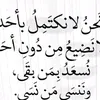 نَحنُ لا نكتَمِلُ بأحَد
لا نضِيعُ مِن دُونِ أحَد
نُسعَدُ بمَن بقَى،
ونَنسَى مَن نَسَى.